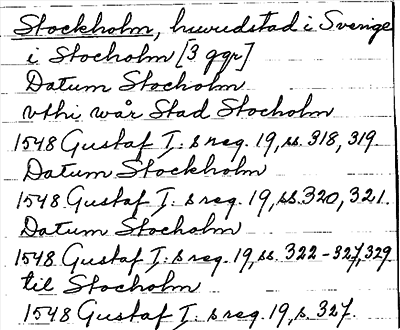 Stockholm, huvudstad i Sverige
i Stocholm [3 ggr]
Datum Stocholm
vthi wår Stad Stocholm
1548 Gustaf I:s reg. 19, ss. 318, 319
Datum Stockholm
1548 Gustaf I:s reg. 19, ss. 320, 321.
Datum Stocholm
1548 Gustaf I:s reg. 19, ss. 322-327, 329
til Stocholm
1548 Gustaf I:s reg. 19, s. 327.